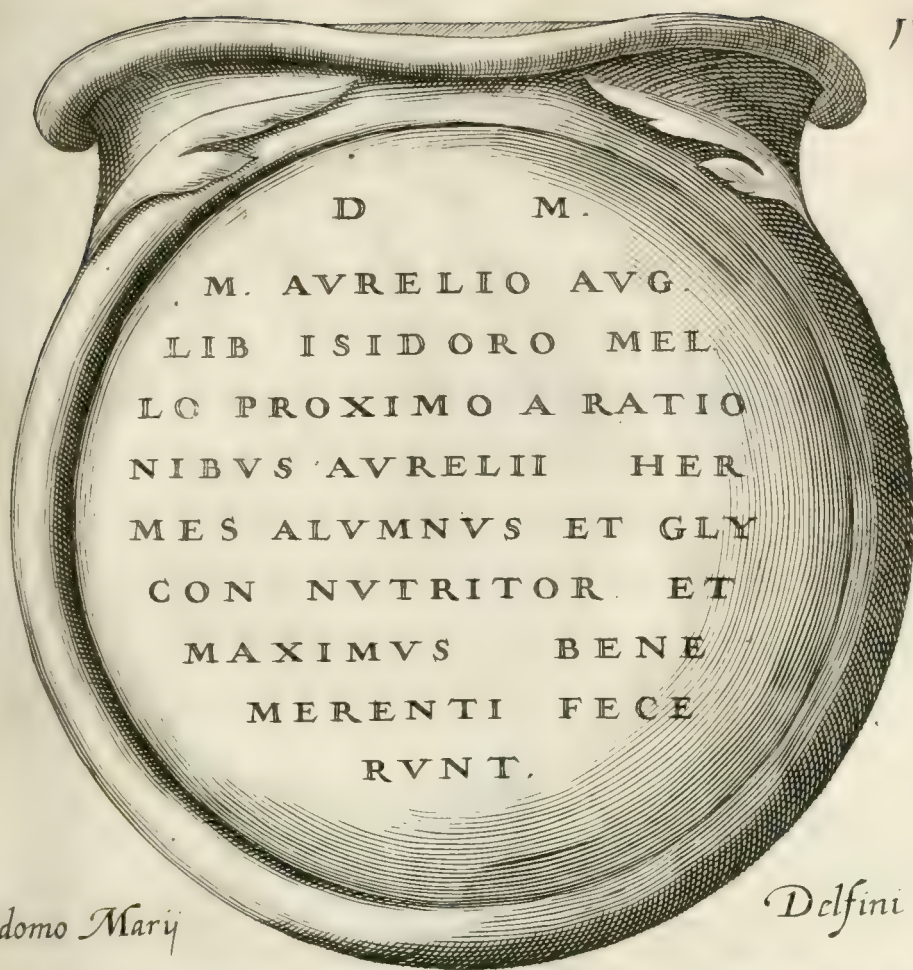 D M.
M. AVRELIO AVG.
LIB ISIDORO MEL
LO PROXIMO A RATIO
NIBVS AVRELII HER
MES ALVMNVS ET GLY
CON NVTRITOR ET
MAXIMVS BENE
MERENTI FECE
RVNT.
domo Marij Delfini